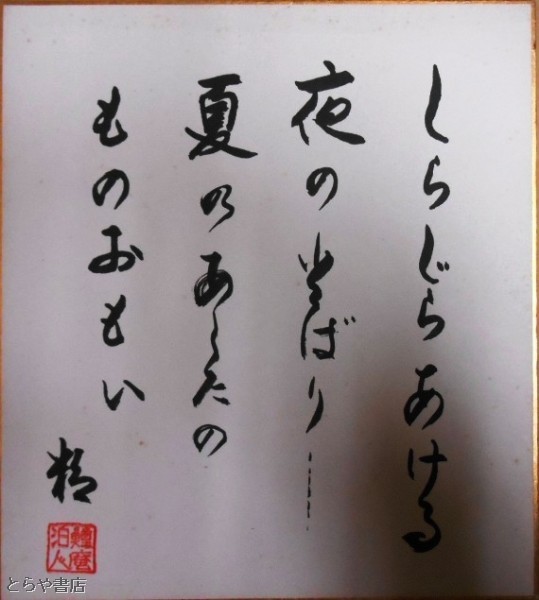 しらじらあける
夜のとばり……
夏のあしたの
ものおもい
とらや書店